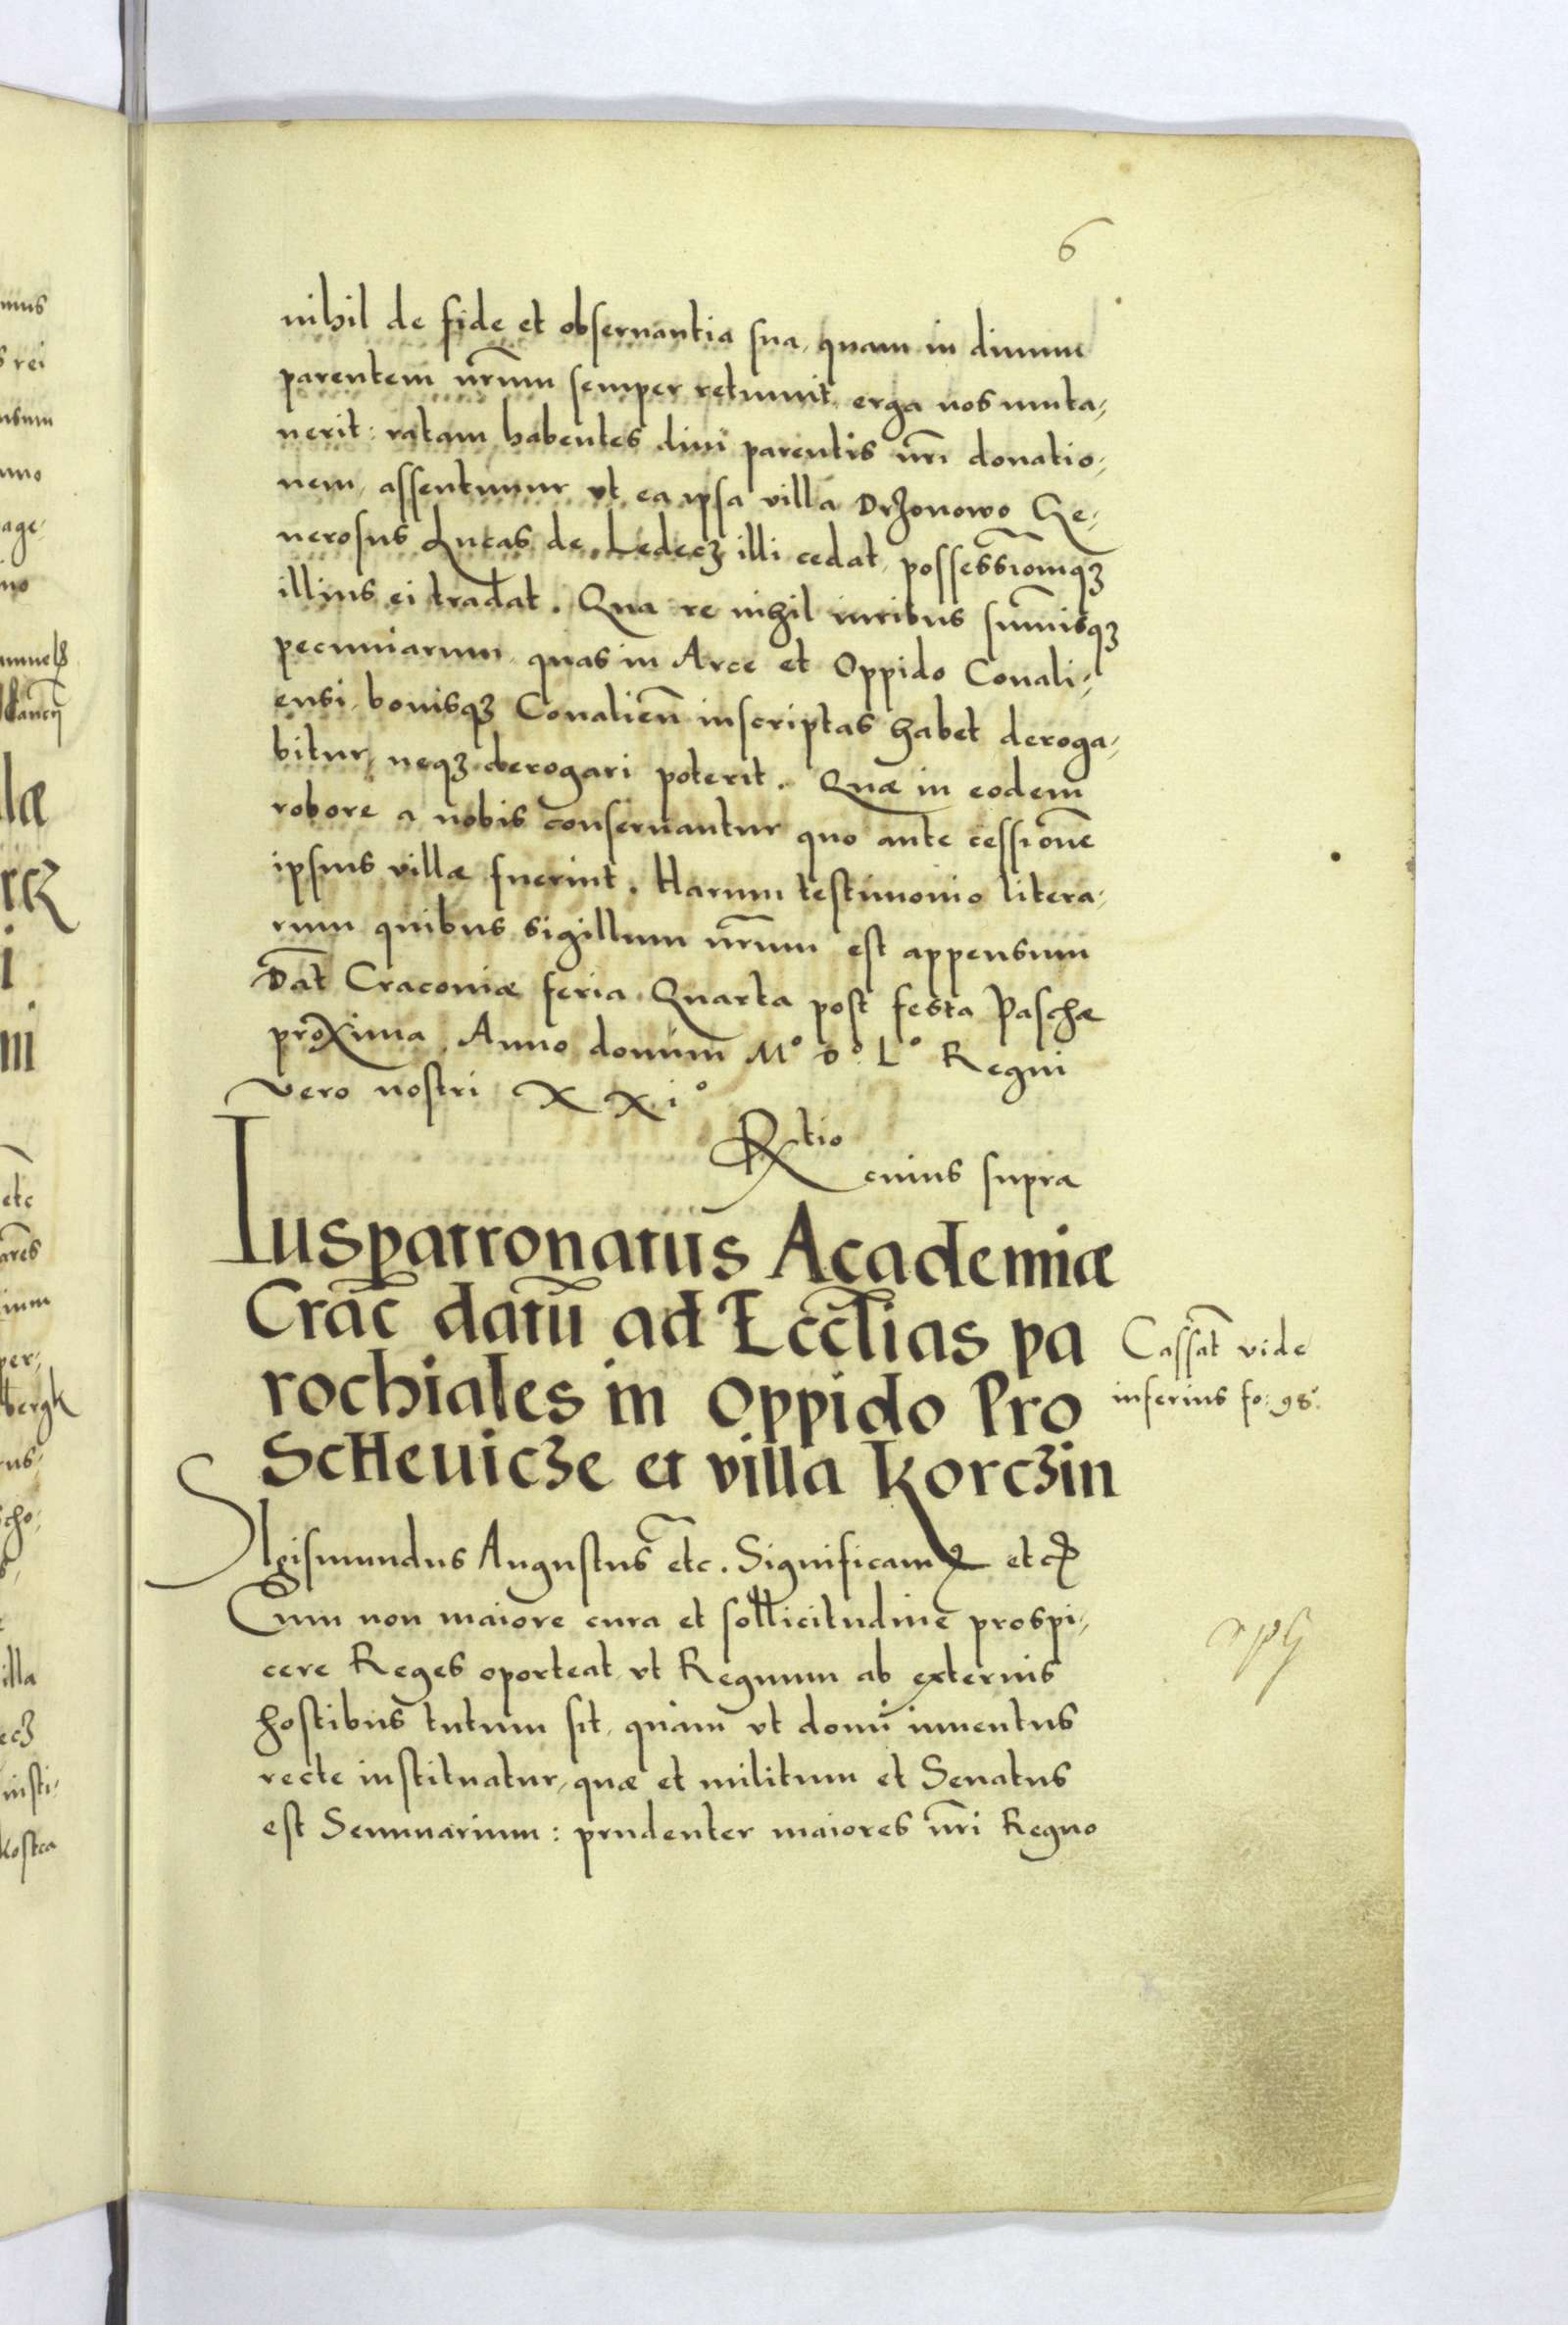 6
nihil de fide et obseruantia sua, quam in diuum
parentem nr̃um semper retinuit, erga nos muta-
uerit: ratam habentes diui parentis nr̃i donatio-
nem, assentimur vt ea ipsa villa Drzonowo Ge-
nerosus Lucas de Ledecz illi cedat, possessionẽqz
illius ei tradat. Qua re nihil iuribus sum̃isqz
pecuniarum, quas in Arce et Oppido Conali-
ensi, bonisqz Conalieñ inscriptas habet deroga-
bitur, neqz derogari poterit. Quæ in eodem
robore a nobis conseruantur quo ante cessionẽ
ipsius villæ fuerint. Harum testimonio litera-
rum quibus sigillum nr̃um est appensum
Dat̃ Cracouiæ feria Quarta post festa Paschæ
proxima, Anno domini M° D° L° Regni
vero nostri XXi°
Rtio
cuius supra
Iuspatronatus Academiæ
Crac̃ datũ ad Eccl̃ias pa
rochiales in Oppido Pro
Scheuicze et villa Korczin
Cassat̃ vide
inferius fo: 98.
SIgismundus Augustus etc̃. Significamꝰ etc̃
Cum non maiore cura et sollicitudine prospi-
cere Reges oporteat, vt Regnum ab externis
hostibus tutum sit, quam vt domi iuuentus
recte instituatur, quæ et militum et Senatus
est Seminarium: prudenter maiores nr̃i Regno